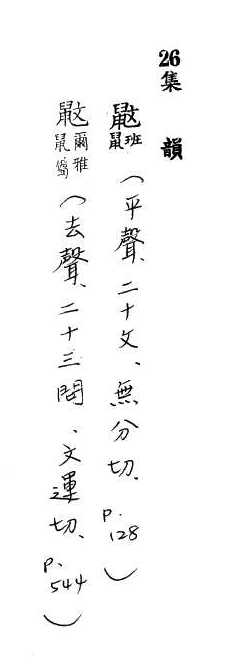 26集韻
鼤班鼠(平聲、二十文、無分切、p.128)
鼤爾雅鼠(去聲、二十三問、文運切、p.544)